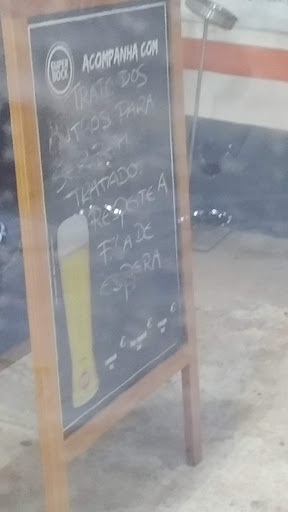 SUPER BOCK
ACOMPANHA COM
TRATE DOS
OUTROS PARA
SER BEM
TRATADO.
RESPEITE A
FILA DE
ESPERA
€ € €